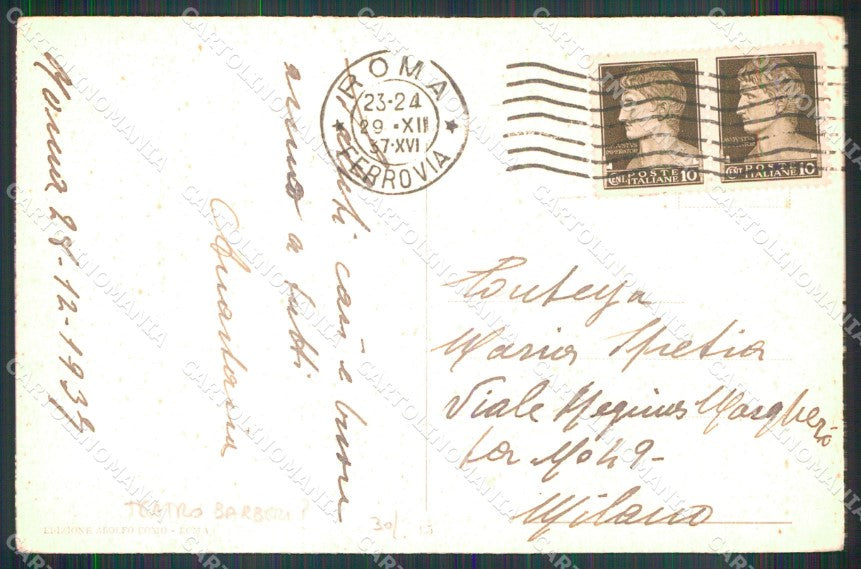 Roma 28-12-1937
cari e buon
anno a tutti
Anastasia
ROMA
23-24
29·XII
37·XVI
FERROVIA
CENT. POSTE ITALIANE 10
CENT. POSTE ITALIANE 10
Contessa
Maria Spetia
Viale Regina Margheri
ta No 49-
Milano
TEATRO BARBERI
30/. 15
EDIZIONE ADOLFO COMO - ROMA
CARTOLINOMANIA